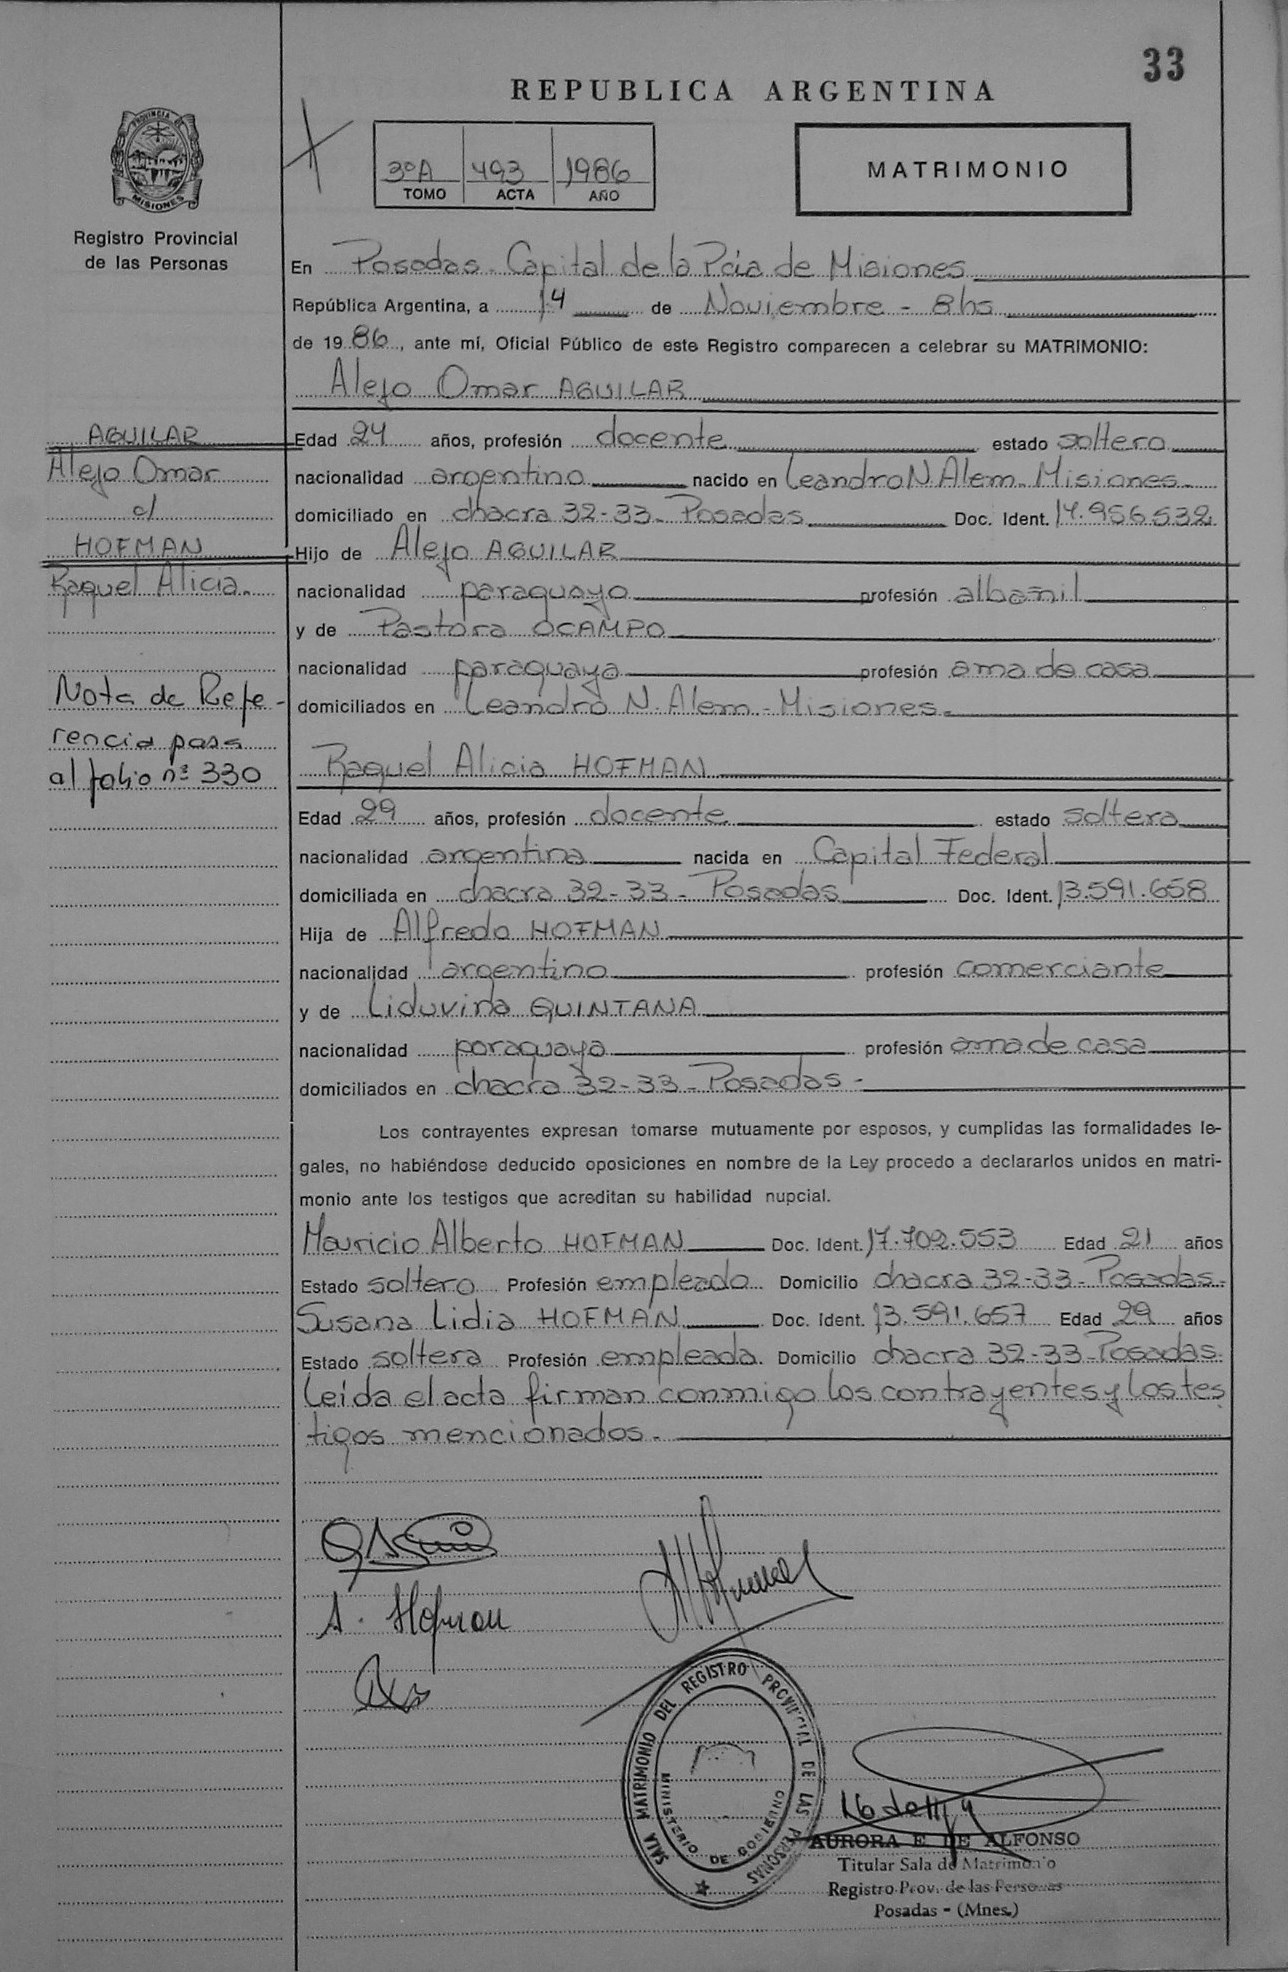 33
REPUBLICA ARGENTINA
PROVINCIA DE
MISIONES
Registro Provincial
de las Personas
3ºA 493 1986
TOMO ACTA AÑO
MATRIMONIO
En Posadas - Capital de la Pcia de Misiones
República Argentina, a 14 de Noviembre - 8hs
de 1986, ante mí, Oficial Público de este Registro comparecen a celebrar su MATRIMONIO:
Alejo Omar AGUILAR
AGUILAR
Alejo Omar
c/
HOFMAN
Raquel Alicia.
Nota de Refe-
rencia pasa
al folio nº 330
Edad 24 años, profesión docente estado soltero
nacionalidad argentino nacido en Leandro N. Alem - Misiones -
domiciliado en chacra 32-33 - Posadas Doc. Ident. 14.956.532
Hijo de Alejo AGUILAR
nacionalidad paraguayo profesión albañil
y de Pastora OCAMPO
nacionalidad paraguaya profesión ama de casa
domiciliados en Leandro N. Alem - Misiones -
Raquel Alicia HOFMAN
Edad 29 años, profesión docente estado soltera
nacionalidad argentina nacida en Capital Federal
domiciliada en chacra 32-33 - Posadas Doc. Ident. 13.591.658
Hija de Alfredo HOFMAN
nacionalidad argentino profesión comerciante
y de Liduvina QUINTANA
nacionalidad paraguaya profesión ama de casa
domiciliados en chacra 32-33 - Posadas -
Los contrayentes expresan tomarse mutuamente por esposos, y cumplidas las formalidades le-
gales, no habiéndose deducido oposiciones en nombre de la Ley procedo a declararlos unidos en matri-
monio ante los testigos que acreditan su habilidad nupcial.
Mauricio Alberto HOFMAN Doc. Ident. 17.702.553 Edad 21 años
Estado soltero Profesión empleado Domicilio chacra 32-33 - Posadas -
Susana Lidia HOFMAN Doc. Ident. 13.591.657 Edad 29 años
Estado soltera Profesión empleada. Domicilio chacra 32-33 - Posadas
Leída el acta firman conmigo los contrayentes y los tes
tigos mencionados -
A. Hofman
SALA MATRIMONIO DEL REGISTRO PROVINCIAL DE LAS PERSONAS
MINISTERIO DE GOBIERNO
AURORA E. DE ALFONSO
Titular Sala de Matrimonio
Registro Prov. de las Personas
Posadas - (Mnes.)